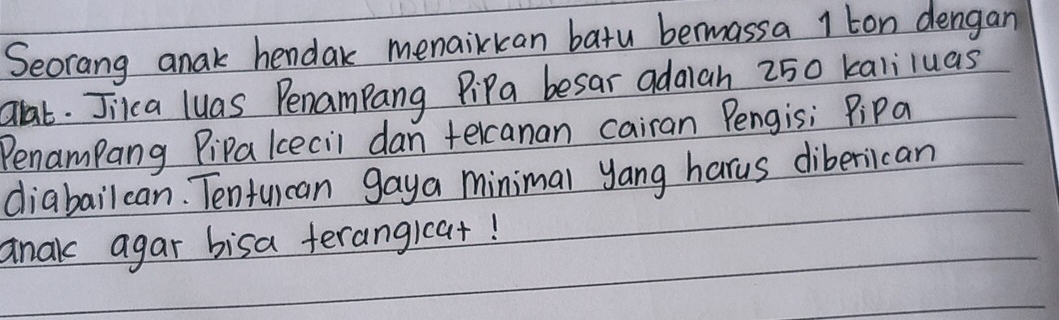 Seorang anak hendak menaikkan batu bermassa 1 ton dengan
alat. Jika luas Penampang Pipa besar adalah 250 kali luas
Penampang Pipa kecil dan tekanan cairan Pengisi Pipa
diabaikan. Tentukan gaya minimal yang harus diberikan
anak agar bisa terangkat!